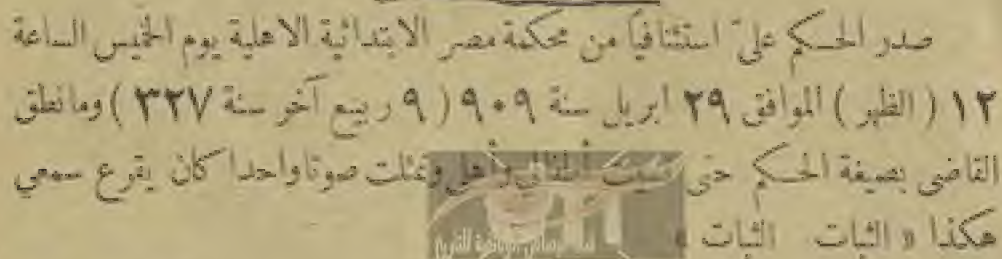 صدر الحكم علىّ استئنافياً من محكمة مصر الابتدائية الاهلية يوم الخميس الساعة
١٢ ( الظهر ) الموافق ٢٩ ابريل سنة ٩٠٩ ( ٩ ربيع آخر سنة ٣٢٧ ) وما نطق
القاضى بصيغة الحكم حتى وتمثلت صوتا واحدا كان يقرع سمعي
هكذا « الثبات الثبات »